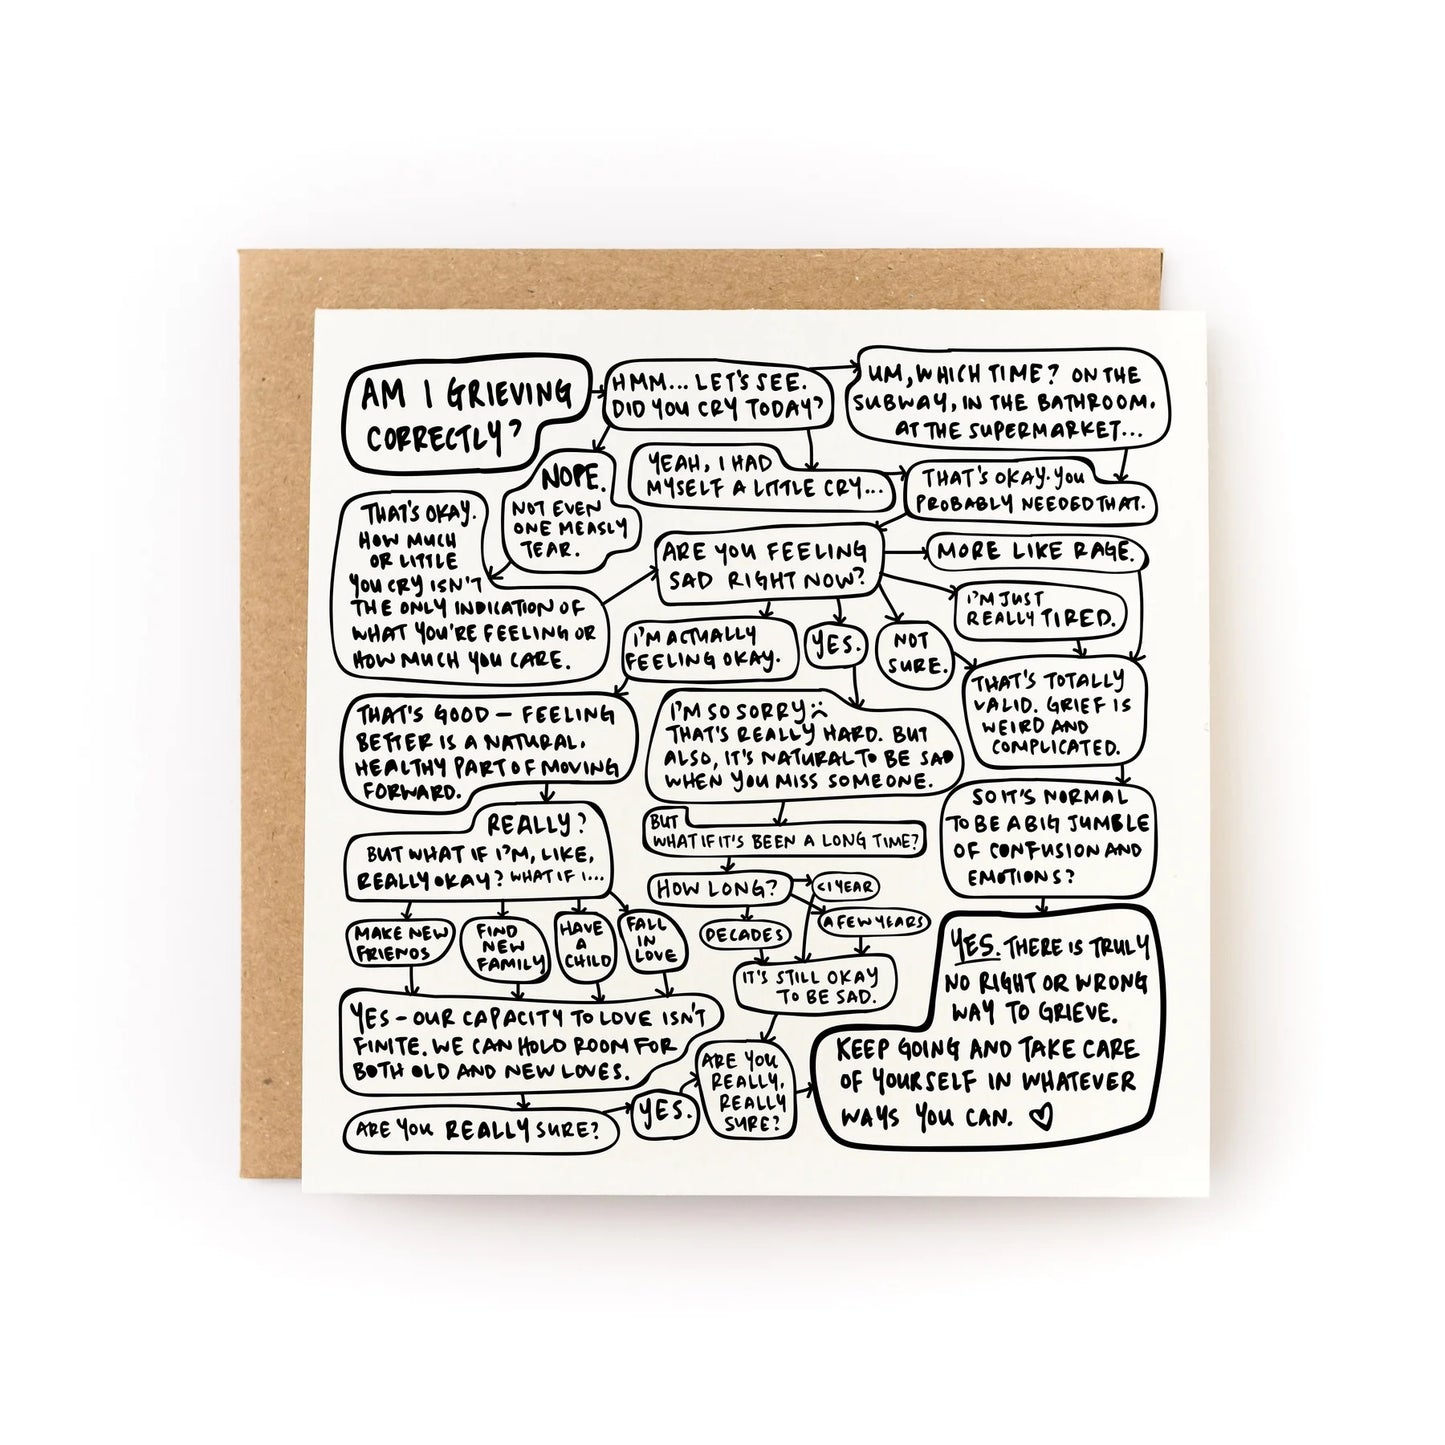 AM I GRIEVING
CORRECTLY?
HMM... LET'S SEE.
DID YOU CRY TODAY?
UM, WHICH TIME? ON THE
SUBWAY, IN THE BATHROOM.
AT THE SUPERMARKET...
NOPE.
NOT EVEN
ONE MEASLY
TEAR.
YEAH, I HAD
MYSELF A LITTLE CRY...
THAT'S OKAY. YOU
PROBABLY NEEDED THAT.
THAT'S OKAY.
HOW MUCH
OR LITTLE
YOU CRY ISN'T
THE ONLY INDICATION OF
WHAT YOU'RE FEELING OR
HOW MUCH YOU CARE.
ARE YOU FEELING
SAD RIGHT NOW?
MORE LIKE RAGE.
I'M JUST
REALLY TIRED.
I'M ACTUALLY
FEELING OKAY.
YES.
NOT
SURE.
THAT'S TOTALLY
VALID. GRIEF IS
WEIRD AND
COMPLICATED.
THAT'S GOOD – FEELING
BETTER IS A NATURAL,
HEALTHY PART OF MOVING
FORWARD.
I'M SO SORRY :(
THAT'S REALLY HARD. BUT
ALSO, IT'S NATURAL TO BE SAD
WHEN YOU MISS SOMEONE.
SO IT'S NORMAL
TO BE A BIG JUMBLE
OF CONFUSION AND
EMOTIONS?
REALLY?
BUT WHAT IF I'M, LIKE,
REALLY OKAY? WHAT IF I...
BUT
WHAT IF IT'S BEEN A LONG TIME?
HOW LONG?
<1 YEAR
A FEW YEARS
DECADES
MAKE NEW
FRIENDS
FIND
NEW
FAMILY
HAVE
A
CHILD
FALL
IN
LOVE
IT'S STILL OKAY
TO BE SAD.
YES – OUR CAPACITY TO LOVE ISN'T
FINITE. WE CAN HOLD ROOM FOR
BOTH OLD AND NEW LOVES.
ARE YOU REALLY SURE?
YES.
ARE YOU
REALLY,
REALLY
SURE?
YES. THERE IS TRULY
NO RIGHT OR WRONG
WAY TO GRIEVE.
KEEP GOING AND TAKE CARE
OF YOURSELF IN WHATEVER
WAYS YOU CAN. ♡